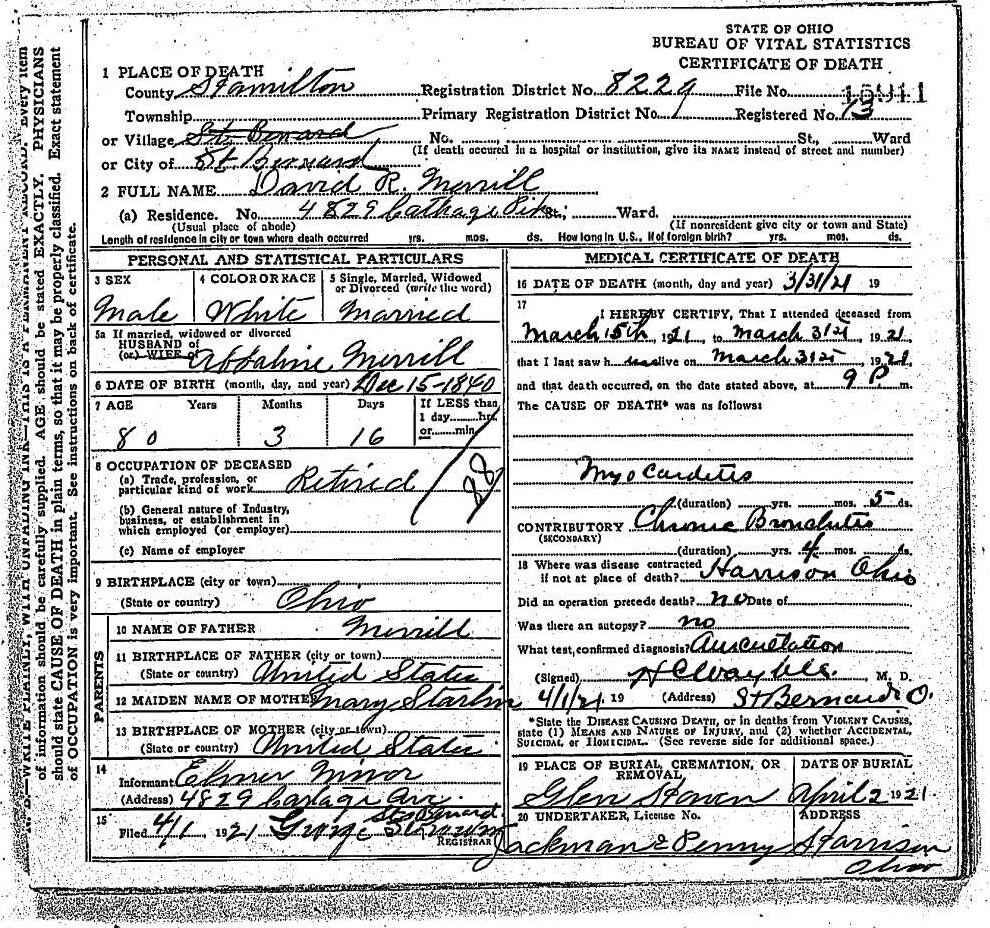 STATE OF OHIO
BUREAU OF VITAL STATISTICS
CERTIFICATE OF DEATH
1 PLACE OF DEATH
County Hamilton Registration District No. 8229 File No. 15911
Township Primary Registration District No. Registered No. 13
or Village St. Bernard No. St., Ward
(If death occured in a hospital or institution, give its NAME instead of street and number)
or City of St Bernard
2 FULL NAME David R. Merrill
(a) Residence. No. 4829 Cathage Pike St.; Ward.
(Usual place of abode) (If nonresident give city or town and State)
Length of residence in city or town where death occurred yrs. mos. ds. How long in U.S., if of foreign birth? yrs. mos. ds.
PERSONAL AND STATISTICAL PARTICULARS
3 SEX 4 COLOR OR RACE 5 Single, Married, Widowed
or Divorced (write the word)
Male White Married
5a If married, widowed or divorced
HUSBAND of
(or) WIFE of Merrill
6 DATE OF BIRTH (month, day, and year) Dec 15-1840
7 AGE Years Months Days If LESS than
1 day hrs.
or min.
80 3 16
8 OCCUPATION OF DECEASED
(a) Trade, profession, or
particular kind of work Retired
88
(b) General nature of Industry,
business, or establishment in
which employed (or employer)
(c) Name of employer
9 BIRTHPLACE (city or town)
(State or country) Ohio
PARENTS
10 NAME OF FATHER Merrill
11 BIRTHPLACE OF FATHER (city or town)
(State or country) United States
12 MAIDEN NAME OF MOTHER Mary Starlin
13 BIRTHPLACE OF MOTHER (city or town)
(State or country) United States
14
Informant Elmer Minor
(Address) 4829 Cartage Ave.
St Bernard
15
Filed 4/1 1921 George
REGISTRAR
MEDICAL CERTIFICATE OF DEATH
16 DATE OF DEATH (month, day and year) 3/31/21 19
17
I HEREBY CERTIFY, That I attended deceased from
March 15th, 1921, to March 31st, 1921,
that I last saw h im alive on March 31st, 1921
and that death occurred, on the date stated above, at 9 P m.
The CAUSE OF DEATH* was as follows:
Myocarditis
(duration) yrs. mos. 5 ds.
CONTRIBUTORY Chronic Bronchitis
(SECONDARY)
(duration) yrs. 4 mos. ds.
18 Where was disease contracted
if not at place of death? Harrison Ohio
Did an operation precede death? no Date of
Was there an autopsy? no
What test confirmed diagnosis? Auscultation
(Signed) M. D.
4/1/21, 19 (Address) St Bernard O.
*State the DISEASE CAUSING DEATH, or in deaths from VIOLENT CAUSES,
state (1) MEANS AND NATURE OF INJURY, and (2) whether ACCIDENTAL,
SUICIDAL or HOMICIDAL. (See reverse side for additional space.)
19 PLACE OF BURIAL, CREMATION, OR
REMOVAL DATE OF BURIAL
Glen Haven April 2 1921
20 UNDERTAKER, License No. ADDRESS
Jackman & Penny Harrison
Ohio
N. B.—WRITE PLAINLY, WITH UNFADING INK—THIS IS A PERMANENT RECORD. Every item
of information should be carefully supplied. AGE should be stated EXACTLY. PHYSICIANS
should state CAUSE OF DEATH in plain terms, so that it may be properly classified. Exact statement
of OCCUPATION is very important. See instructions on back of certificate.